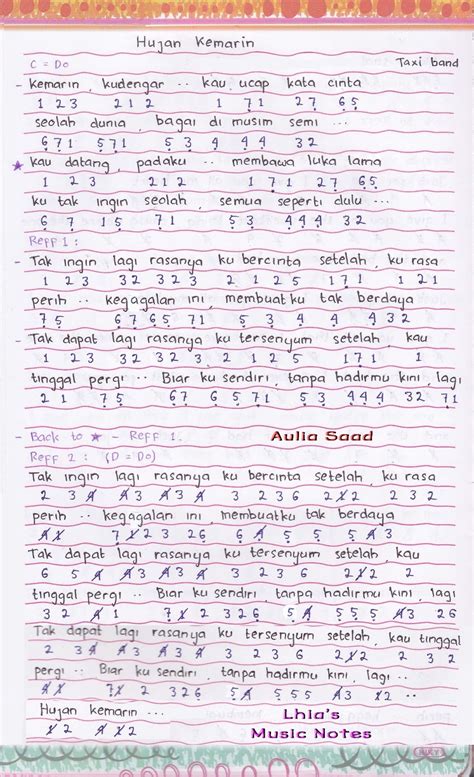 Hujan Kemarin
C = Do
Taxi band
- Kemarin, kudengar .. kau ucap kata cinta
1 2 3 2 1 2 1 71 27 65
seolah dunia, bagai di musim semi ...
671 571 5 3 4 4 4 32
★ kau datang, padaku .. membawa luka lama
1 2 3 2 1 2 1 7 1 27 65
ku tak ingin seolah, semua seperti dulu ...
6 7 15 71 53 444 32
Reff 1 :
- Tak ingin lagi rasanya ku bercinta setelah, ku rasa
1 2 3 32 323 2 125 171 1 21
perih .. kegagalan ini, membuat ku tak berdaya
75 67 65 71 5 3 4 4 4 32
- Tak dapat lagi rasanya ku tersenyum setelah, kau
1 23 32 32 3 2 1 2 5 171 1
tinggal pergi ... Biar ku sendiri, tanpa hadirmu kini, lagi
2 1 75 67 6 571 53 444 32 71
- Back to ★ - Reff 1.
Aulia Saad
Reff 2 : (D = Do)
Tak ingin lagi rasanya ku bercinta setelah, ku rasa
perih .. kegagalan ini, membuatku tak berdaya
Tak dapat lagi rasanya ku tersenyum setelah, kau
tinggal pergi .. Biar ku sendiri tanpa hadirmu kini, lagi
Tak dapat lagi rasanya ku tersenyum setelah, kau tinggal
pergi .. Biar ku sendiri, tanpa hadirmu kini, lagi ..
Hujan kemarin ...
Lhia's
Music Notes